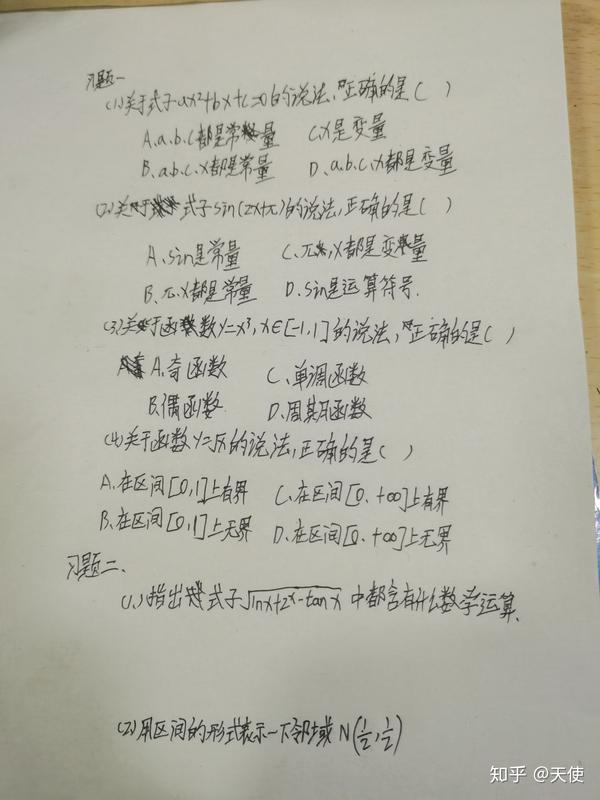 习题一
(1)关于式子ax²+bx+c=0的说法,正确的是( )
A.a.b.c都是常量 C.x是变量
B.a.b.c.x都是常量 D.a.b.c.x都是变量
(2)关于式子sin(2x+π)的说法,正确的是( )
A.sin是常量 C.π,x都是变量
B.π.x都是常量 D.sin是运算符号.
(3)关于函数y=x³,x∈[-1,1]的说法,正确的是( )
A.奇函数 C.单调函数
B.偶函数 D.周期函数
(4)关于函数y=√x的说法,正确的是( )
A.在区间[0,1]上有界 C.在区间[0.+∞]上有界
B.在区间[0,1]上无界 D.在区间[0.+∞]上无界
习题二.
(1.)指出式子√(lnx+2^x-tanx) 中都含有什么数学运算.
(2)用区间的形式表示一下邻域 N(1/2,1/2)
知乎 @天使